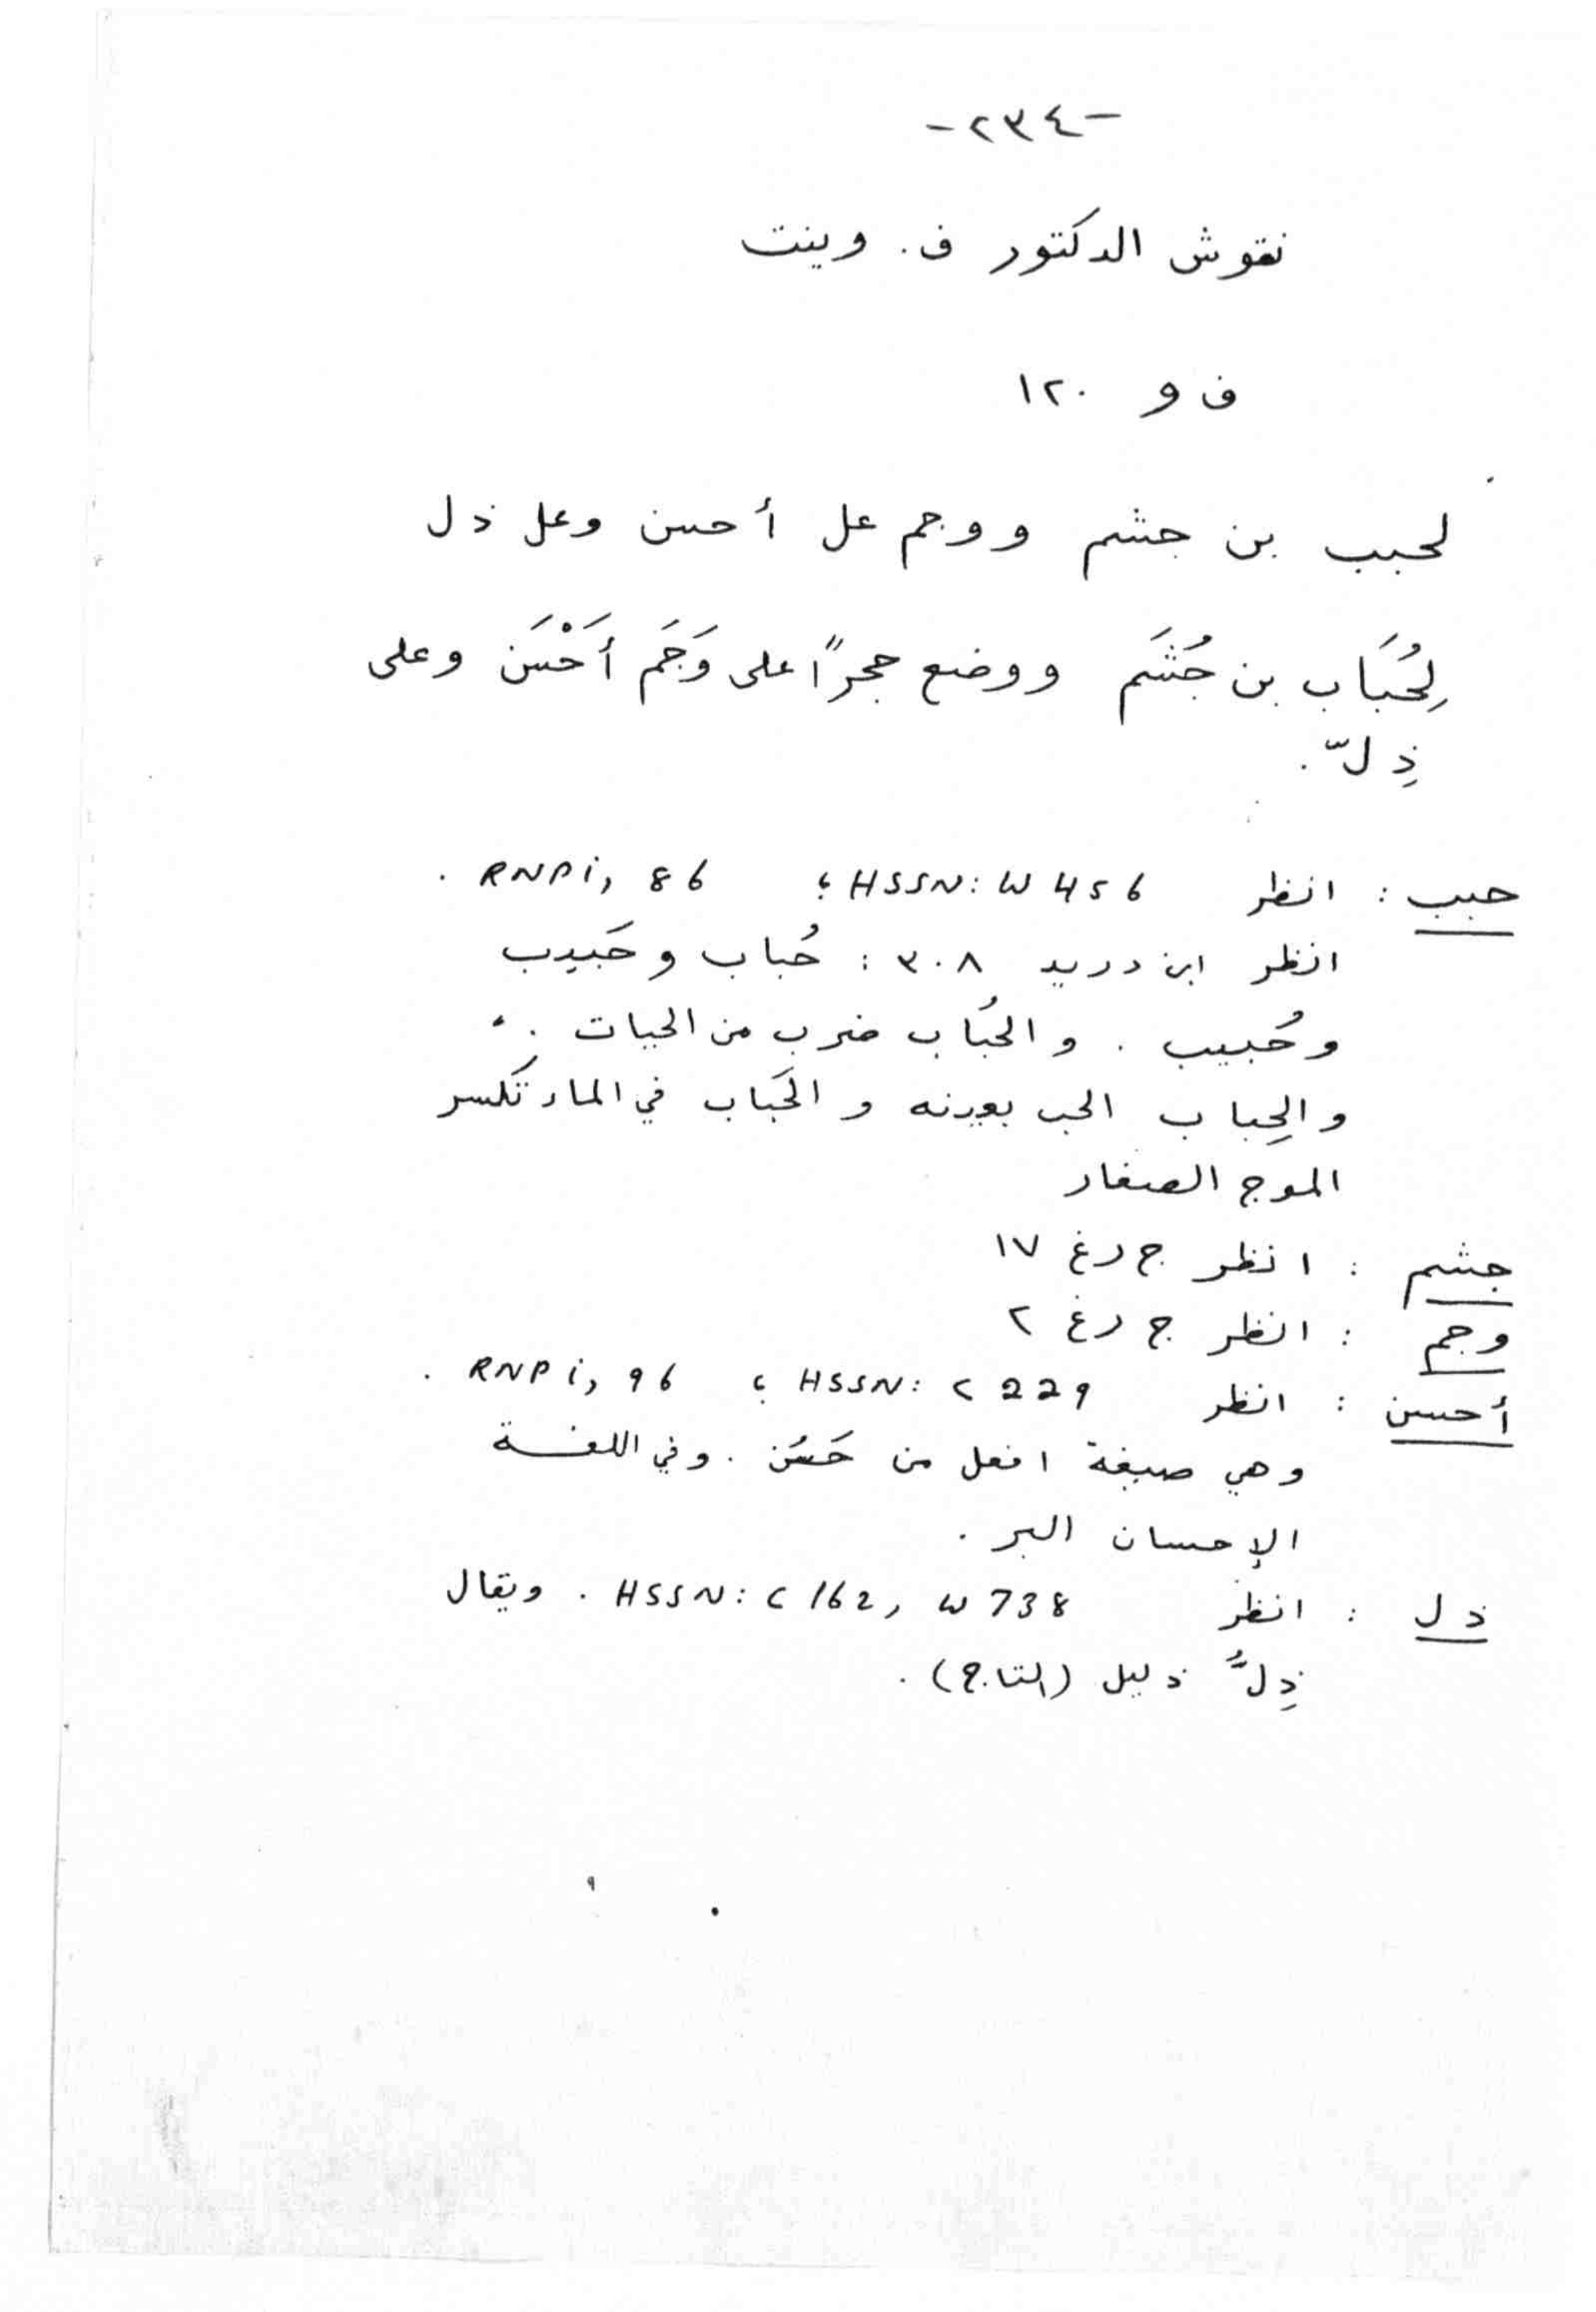 -٢٣٤-
نقوش الدكتور ف. وينت
ف و ١٢٠
لحبب بن جشم ووجم عل أحسن وعل ذل
لِحُبَاب بن جُشَم ووضع حجراً على وَجَم أَحْسَن وعلى
ذِلّ.
حبب : انظر HSSN: W 456 ؛ RNPi, 86 .
انظر ابن دريد ٣٠٨ : حُباب وحَبيب
وحُبيب . والحُبَاب ضرب من الحيات .
والحِباب الحب بعينه والحَبَاب في الماء تَكسر
الموج الصغار
جشم : انظر ج رغ ١٧
وجم : انظر ج رغ ٢
أحسن : انظر HSSN: C 229 ؛ RNPi, 96 .
وهي صيغة افعل من حَسُن . وفي اللغة
الإحسان البر .
ذل : انظر HSSN: C 162, W 738 . ويقال
ذِلُّ ذليل (التاج) .